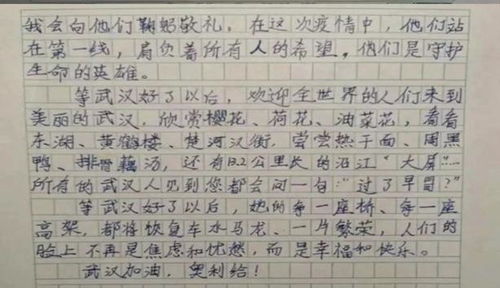 我会向他们鞠躬敬礼。在这次疫情中，他们站
在第一线，肩负着所有人的希望。他们是守护
生命的英雄。
等武汉好了以后，欢迎全世界的人们来到
美丽的武汉，欣赏樱花、荷花、油菜花，看看
东湖、黄鹤楼、楚河汉街，尝尝热干面、周黑
鸭、排骨藕汤，还有13.2公里长的沿江“大屏”……
所有的武汉人见到您都会问一句：“过了早冇？”
等武汉好了以后，她的每一座桥、每一座
高架，都将恢复车水马龙、一片繁荣，人们的
脸上不再是焦虑和忧愁，而是幸福和快乐。
武汉加油，奥利给！